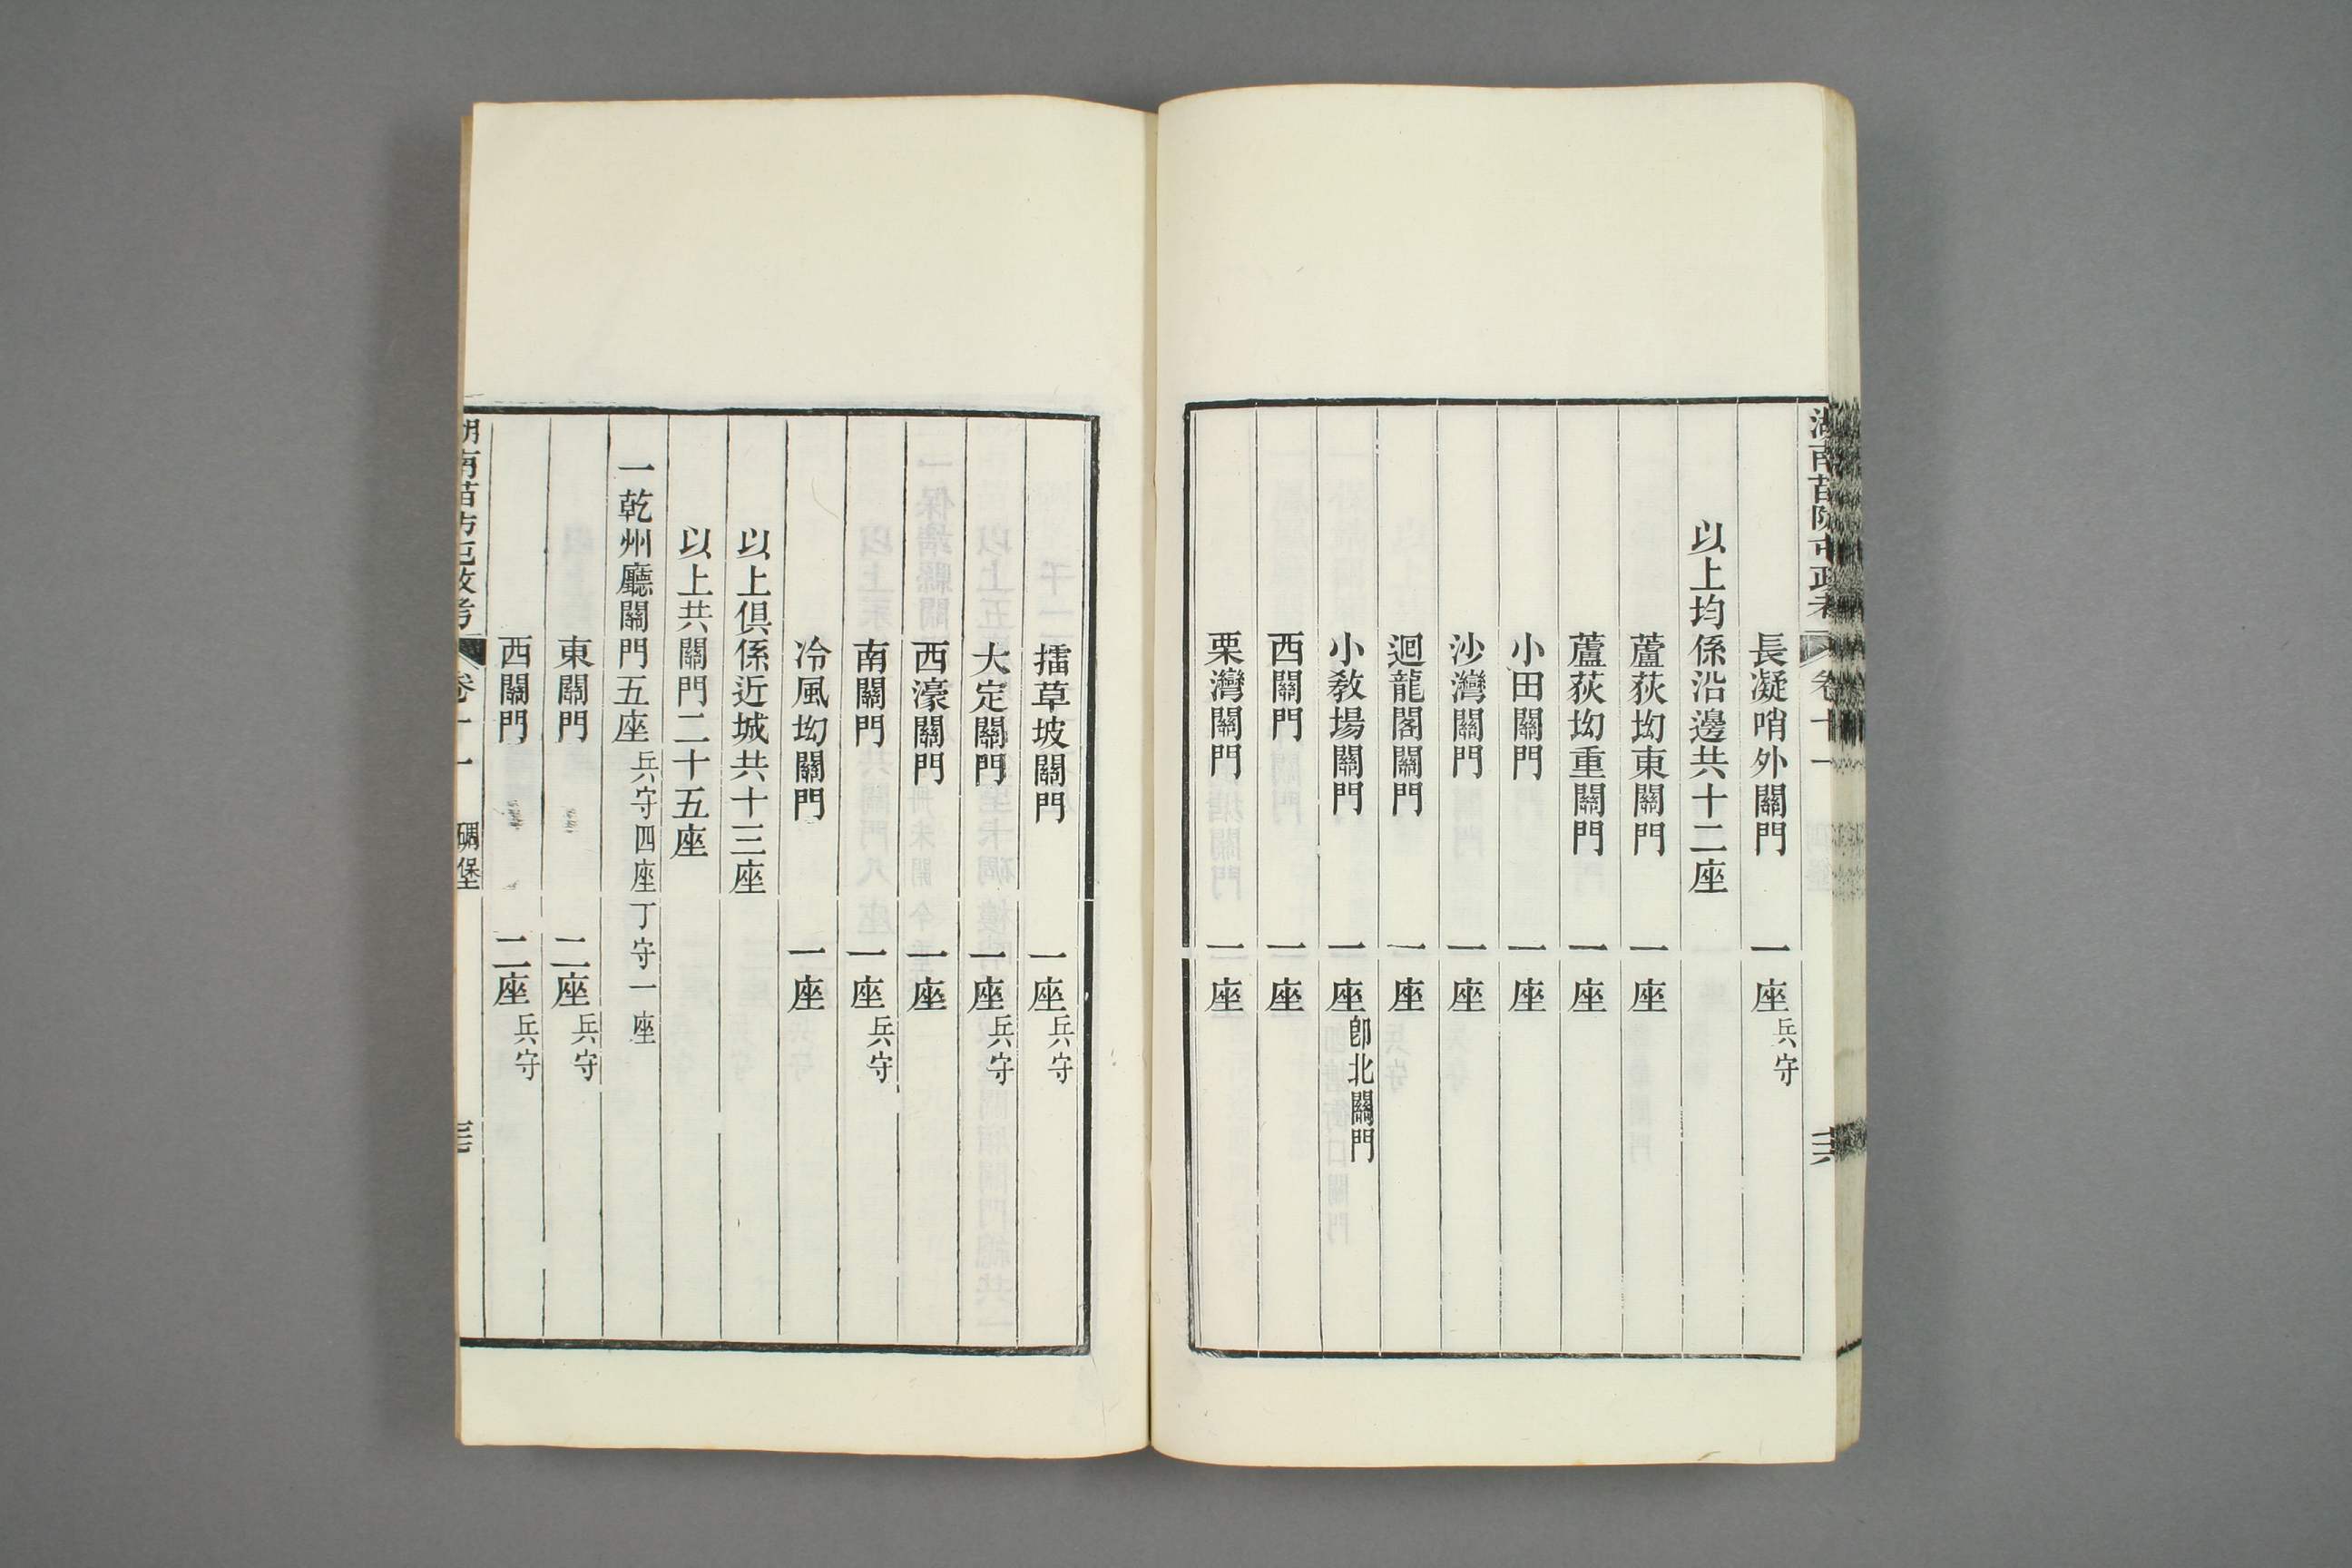 湖南苗防屯政考 卷十一
長凝哨外關門 一座兵守
以上均係沿邊共十二座
蘆荻坳東關門 一座
蘆荻坳重關門 一座
小田關門 一座
沙灣關門 一座
迴龍閣關門 一座
小教場關門 一座卽北關門
西關門 一座
栗灣關門 一座
擂草坡關門 一座兵守
大定關門 一座兵守
西濠關門 一座
南關門 一座兵守
冷風坳關門 一座
以上俱係近城共十三座
以上共關門二十五座
一乾州廳關門五座兵守四座丁守一座
東關門 二座兵守
西關門 二座兵守
湖南苗防屯政考 卷十一 碉堡